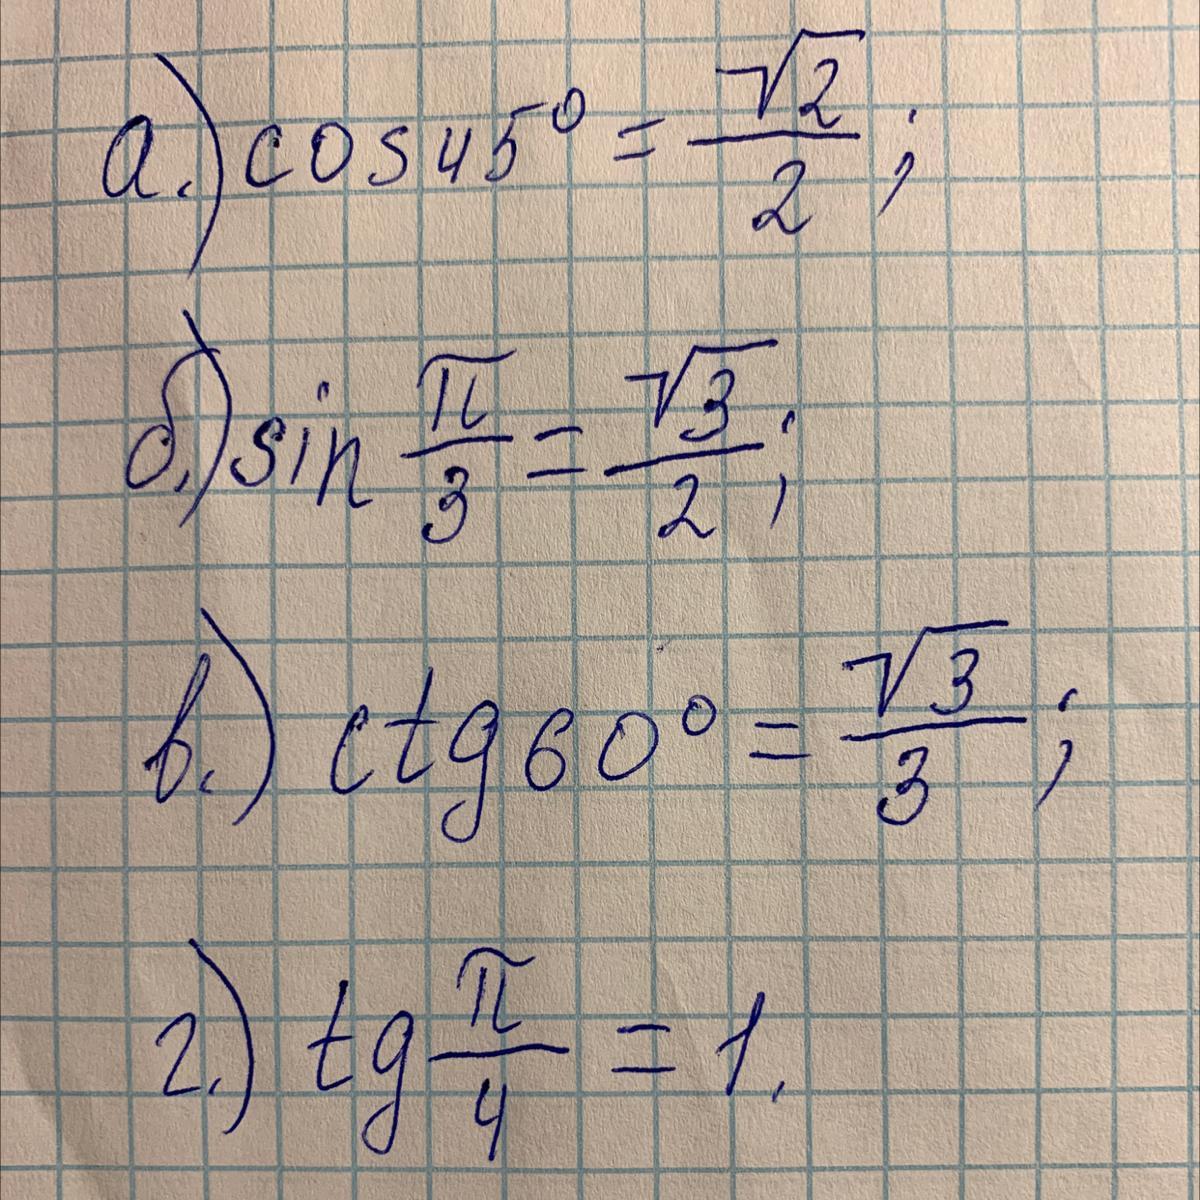 а.) cos 45° = √2/2;
б.) sin π/3 = √3/2;
в.) ctg 60° = √3/3;
г.) tg π/4 = 1.